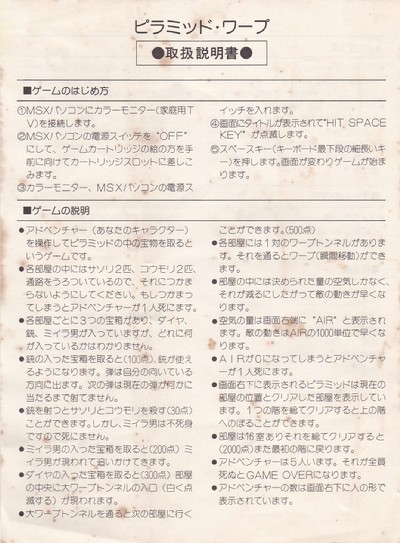 ピラミッド・ワープ
●取扱説明書●
■ゲームのはじめ方
①MSXパソコンにカラーモニター(家庭用T
V)を接続します。
②MSXパソコンの電源スイッチを“OFF”
にして、ゲームカートリッジの絵の方を手
前に向けてカートリッジスロットに差しこ
みます。
③カラーモニター、MSXパソコンの電源ス
イッチを入れます。
④画面にタイトルが表示されて“HIT SPACE
KEY”が点滅します。
⑤スペースキー(キーボード最下段の細長いキ
ー)を押します。画面が変わりゲームが始ま
ります。
■ゲームの説明
●アドベンチャー(あなたのキャラクター)
を操作してピラミッドの中の宝物を取ると
いうゲームです。
●各部屋の中にはサソリ2匹、コウモリ2匹、
通路をうろついているので、それにつかま
らないようにしてください。もしつかまっ
てしまうとアドベンチャーが1人死にます。
●各部屋ごとに3つの宝箱があり、ダイヤ、
銃、ミイラ男が入っていますが、どれに何
が入っているかはわかりません。
●銃の入った宝箱を取ると(100点)、銃が使え
るようになります。弾は自分の向いている
方向に出ます。次の弾は現在の弾が何かに
当たるまで射てません。
●銃を射つとサソリとコウモリを殺す(30点)
ことができます。しかし、ミイラ男は不死身
ですので死にません。
●ミイラ男の入った宝箱を取ると(200点)ミ
イラ男が現われて追いかけてきます。
●ダイヤの入った宝箱を取ると(300点)部屋
の中央に大ワープトンネルの入口(白く点
滅する)が現われます。
●大ワープトンネルを通ると次の部屋に行く
ことができます。(500点)
●各部屋には1対のワープトンネルがありま
す。それを通るとワープ(瞬間移動)ができ
ます。
●部屋の中には決められた量の空気しかなく、
それが減るにしたがって敵の動きが早くな
ります。
●空気の量は画面右端に“AIR”と表示され
ます。敵の動きはAIRの1000単位で早くな
ります。
●AIRが0になってしまうとアドベンチャ
ーが1人死にます。
●画面右下に表示されるピラミッドは現在の
部屋の位置とクリアした部屋を表示してい
ます。1つの階を総てクリアすると上の階
へのぼることができます。
●部屋は16室ありそれを総てクリアすると
(2000点)また最初の階に戻ります。
●アドベンチャーは5人います。それが全員
死ぬとGAME OVERになります。
●アドベンチャーの数は画面右下に人の形で
表示されています。